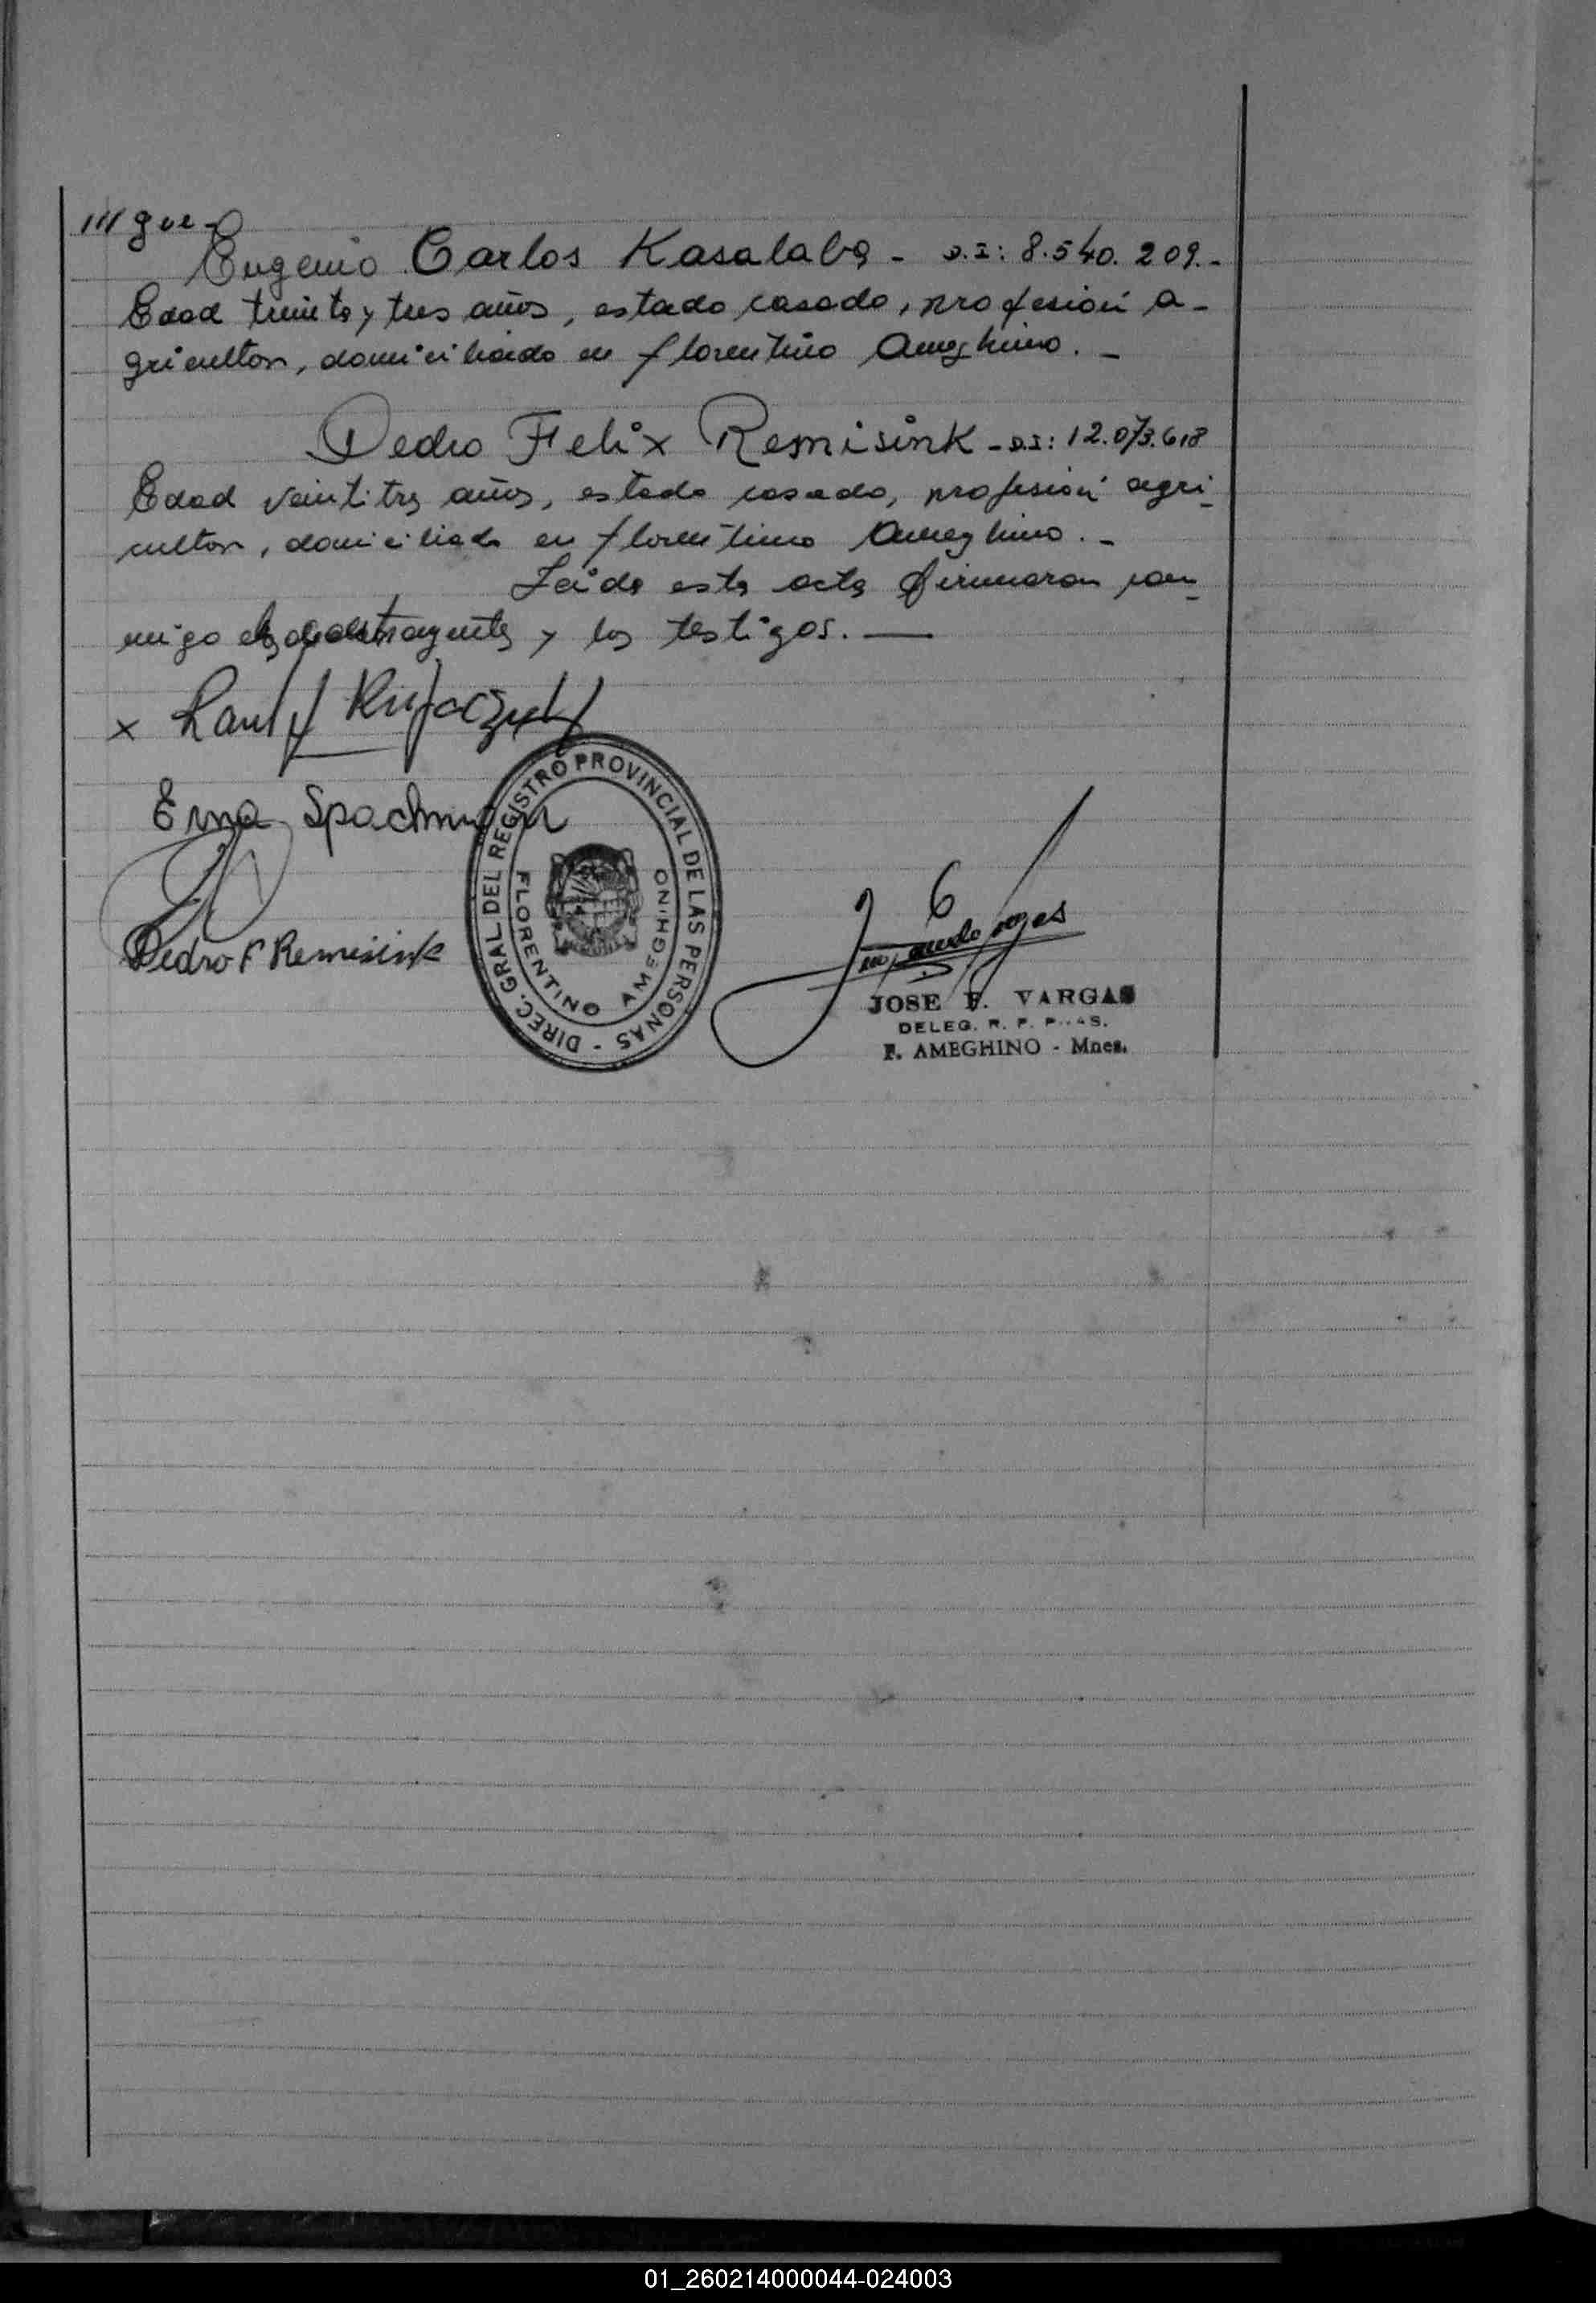 /// gue -
Eugenio Carlos Kasalaba - D.I: 8.540.209.-
Edad treinta y tres años, estado casado, profesión a-
gricultor, domiciliado en florentino Ameghino. -
Pedro Felix Remisink - D.I: 12.073.618
Edad veintitres años, estado casado, profesión agri-
cultor, domiciliado en florentino Ameghino. -
Leída esta acta firmaron con-
migo contrayentes y los testigos. —
x Raul
Erna Spachmann
Pedro F Remisink
DIREC. GRAL. DEL REGISTRO PROVINCIAL DE LAS PERSONAS -
FLORENTINO AMEGHINO
JOSE F. VARGAS
DELEG. R. P. P..AS.
F. AMEGHINO - Mnes.
01_260214000044-024003